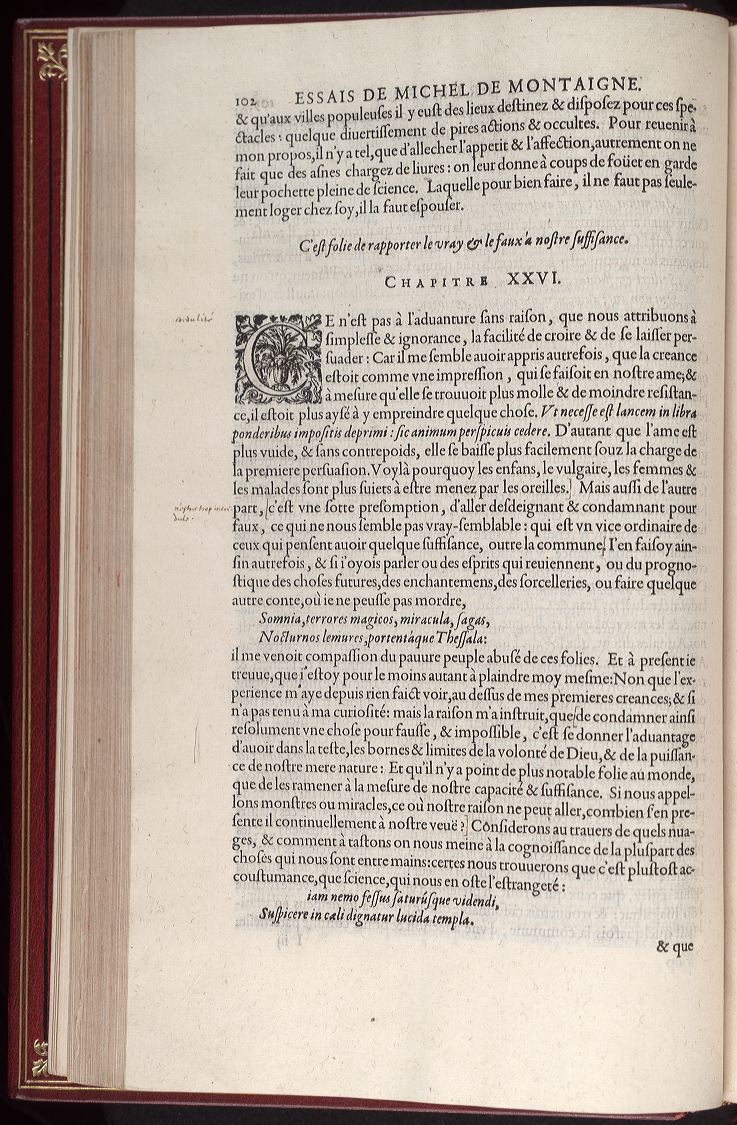 102 ESSAIS DE MICHEL DE MONTAIGNE.
& qu'aux villes populeuſes il y euſt des lieux deſtinez & diſpoſez pour ces ſpe-
ctacles : quelque diuertiſſement de pires actions & occultes. Pour reuenir à
mon propos, il n'y a tel, que d'allecher l'appetit & l'affection, autrement on ne
fait que des aſnes chargez de liures : on leur donne à coups de foüet en garde
leur pochette pleine de ſcience. Laquelle pour bien faire, il ne faut pas ſeule-
ment loger chez ſoy, il la faut eſpouſer.
C'eſt folie de rapporter le vray & le faux à noſtre ſuffiſance.
CHAPITRE XXVI.
CE n'eſt pas à l'aduanture ſans raiſon, que nous attribuons à
ſimpleſſe & ignorance, la facilité de croire & de ſe laiſſer per-
ſuader : Car il me ſemble auoir appris autrefois, que la creance
eſtoit comme vne impreſſion, qui ſe faiſoit en noſtre ame; &
à meſure qu'elle ſe trouuoit plus molle & de moindre reſiſtan-
ce, il eſtoit plus ayſé à y empreindre quelque choſe. Vt neceſſe eſt lancem in libra
ponderibus impoſitis deprimi : ſic animum perſpicuis cedere. D'autant que l'ame eſt
plus vuide, & ſans contrepoids, elle ſe baiſſe plus facilement ſouz la charge de
la premiere perſuaſion. Voylà pourquoy les enfans, le vulgaire, les femmes &
les malades ſont plus ſuiets à eſtre menez par les oreilles. Mais auſſi de l'autre
part, c'eſt vne ſotte preſomption, d'aller deſdeignant & condamnant pour
faux, ce qui ne nous ſemble pas vray-ſemblable : qui eſt vn vice ordinaire de
ceux qui penſent auoir quelque ſuffiſance, outre la commune. I'en faiſoy ain-
ſin autrefois, & ſi i'oyois parler ou des eſprits qui reuiennent, ou du progno-
ſtique des choſes futures, des enchantemens, des ſorcelleries, ou faire quelque
autre conte, où ie ne peuſſe pas mordre,
Somnia, terrores magicos, miracula, ſagas,
Nocturnos lemures, portentáque Theſſala:
il me venoit compaſſion du pauure peuple abuſé de ces folies. Et à preſent ie
treuue, que i'eſtoy pour le moins autant à plaindre moy meſme: Non que l'ex-
perience m'aye depuis rien faict voir, au deſſus de mes premieres creances; & ſi
n'a pas tenu à ma curioſité: mais la raiſon m'a inſtruit, que de condamner ainſi
reſolument vne choſe pour fauſſe, & impoſſible, c'eſt ſe donner l'aduantage
d'auoir dans la teſte, les bornes & limites de la volonté de Dieu, & de la puiſſan-
ce de noſtre mere nature : Et qu'il n'y a point de plus notable folie au monde,
que de les ramener à la meſure de noſtre capacité & ſuffiſance. Si nous appel-
lons monſtres ou miracles, ce où noſtre raiſon ne peut aller, combien s'en pre-
ſente il continuellement à noſtre veuë ? Conſiderons au trauers de quels nua-
ges, & comment à taſtons on nous meine à la cognoiſſance de la pluſpart des
choſes qui nous ſont entre mains: certes nous trouuerons que c'eſt pluſtoſt ac-
couſtumance, que ſcience, qui nous en oſte l'eſtrangeté :
iam nemo feſſus ſaturúſque videndi,
Suſpicere in cæli dignatur lucida templa.
& que